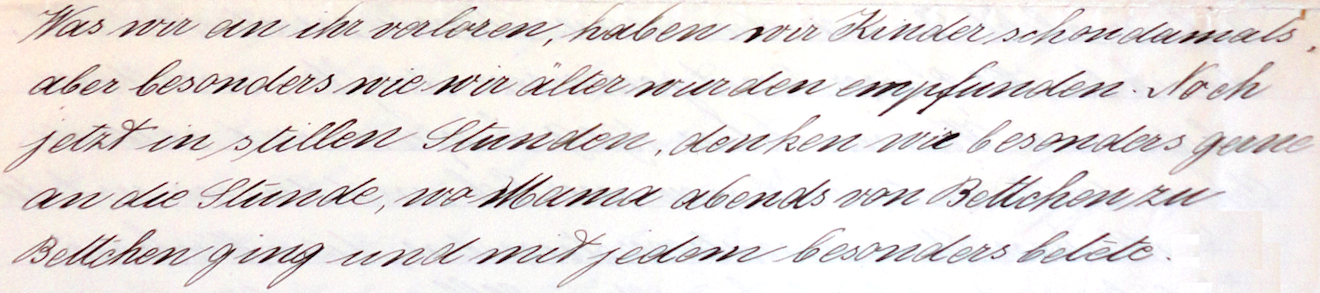 Was wir an ihr verloren, haben wir Kinder schon damals,
aber besonders wie wir älter wurden empfunden. Noch
jetzt in stillen Stunden, denken wir besonders gerne
an die Stunde, wo Mama abends von Bettchen zu
Bettchen ging und mit jedem besonders betete.